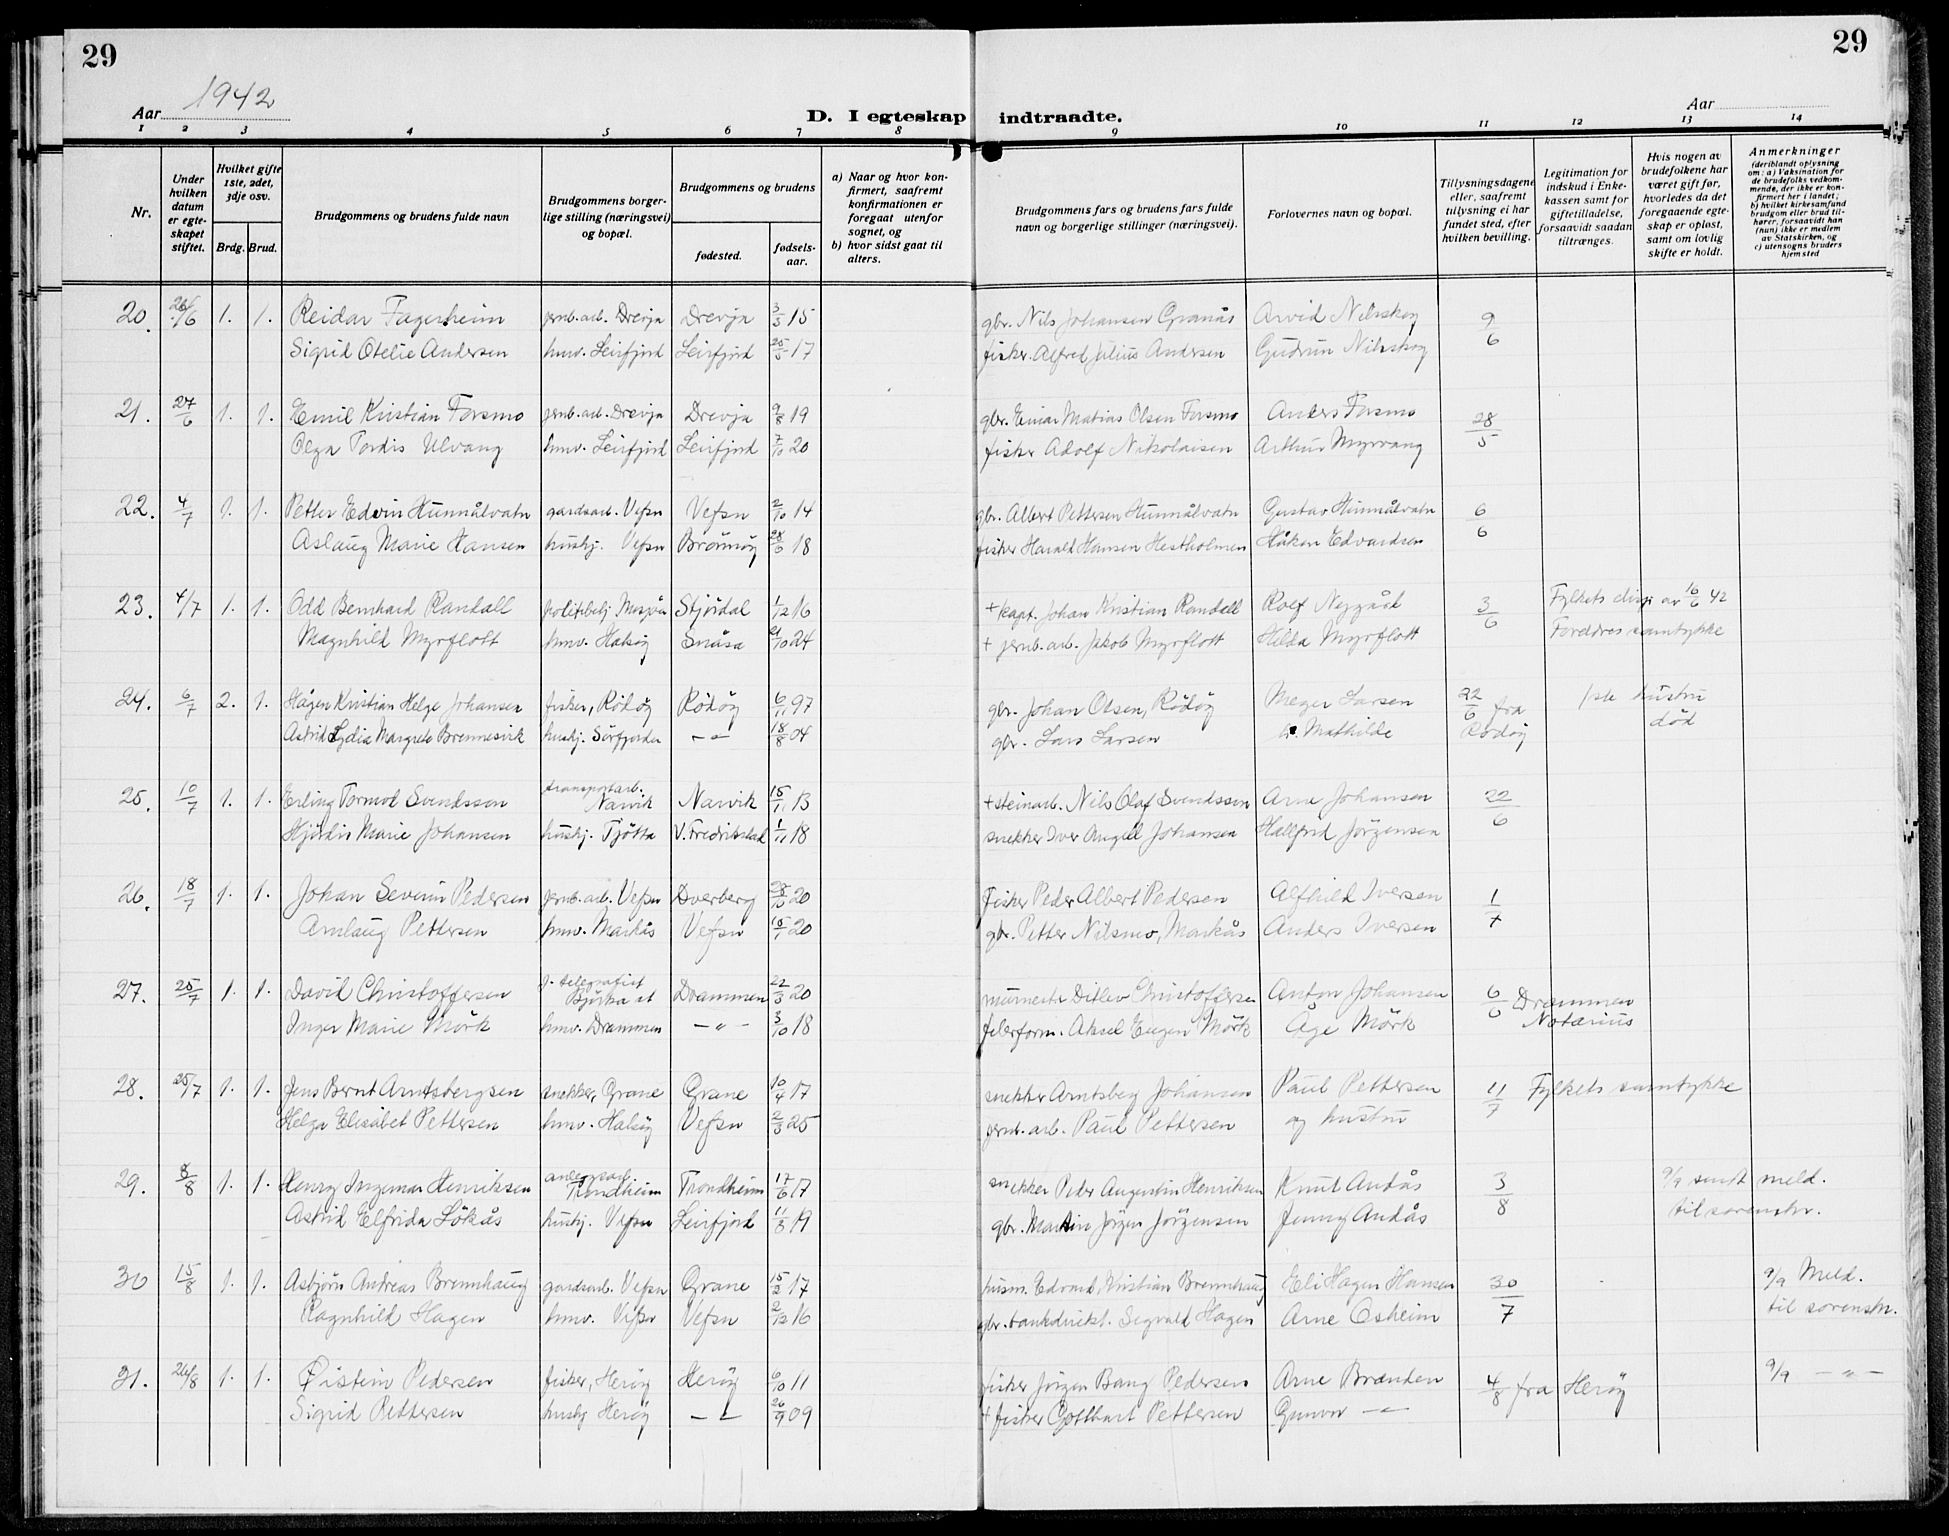 29
29
Aar 1942
D. I egteskap indtraadte.
Aar
1 2 3 4 5 6 7 8 9 10 11 12 13 14
Nr.
Under hvilken datum er egteskapet stiftet.
Hvilket gifte 1ste, 2det, 3dje osv.
Brdg. Brud.
Brudgommens og brudens fulde navn
Brudgommens borgerlige stilling (næringsvei) og bopæl.
Brudgommens og brudens
fødested.
fødselsaar.
a) Naar og hvor konfirmert, saafremt konfirmationen er foregaat utenfor sognet, og
b) hvor sidst gaat til alters.
Brudgommens fars og brudens fars fulde navn og borgerlige stillinger (næringsvei).
Forlovernes navn og bopæl.
Tillysningsdagene eller, saafremt tillysning ei har fundet sted, efter hvilken bevilling.
Legitimation for indskud i Enkekassen samt for giftetilladelse, forsaavidt saadan tiltrænges.
Hvis nogen av brudefolkene har været gift før, hvorledes da det foregaaende egteskap er opløst, samt om lovlig skifte er holdt.
Anmerkninger
(deriblandt oplysning om: a) Vaksination for de brudefolks vedkommende, der ikke er konfirmert her i landet, b) hvilket kirkesamfund brudgom eller brud tilhører, forsaavidt han (hun) ikke er medlem av Statskirken, og c) utensogns bruders hjemsted
20. 26/6 1. 1. Reidar Fagerheim jernb.arb. Drevja Drevja 3/3 15 gbr. Nils Johansen Granås Arvid Nilsskog 9/6
Sigrid Otelie Andersen hmv. Leirfjord Leirfjord 25/5 17 fisker Alfred Julius Andersen Gudrun Nilsskog
21. 27/6 1. 1. Emil Kristian Forsmo jernb.arb. Drevja Drevja 9/8 19 gbr. Einar Matias Olsen Forsmo Anders Forsmo 28/5
Olga Tordis Ulvang hmv. Leirfjord Leirfjord 7/10 20 fisker Adolf Nikolaisen Arthur Myrvang
22. 4/7 1. 1. Petter Edvin Hunnålvatn gardsarb. Vefsn Vefsn 2/10 14 gbr. Albert Pettersen Hunnålvatn Gustav Hunnålvatn 6/6
Aslaug Marie Hansen hushj. Vefsn Brönnöy 18 fisker Harald Hansen Hestholmen Håkon Edvardsen
23. 4/7 1. 1. Odd Bernhard Randall politibetj Mosjöen Stjördal 1/12 16 + kapt. Johan Kristian Randall Rolf Nygård 3/6 Fylkets disp av 16/6 42
Magnhild Myrflott hmv. Halsöy Snåsa 21/10 24 + jernb.arb. Jakob Myrflott Hilda Myrflott Foreldres samtykke
24. 6/7 2. 1. Hågen Kristian Helge Johansen fisker, Rödöy Rödöy 6/11 97 gbr. Johan Olsen, Rödöy Meyer Larsen 22/6 fra 1ste hustru
Astrid Lydia Margrete Brennesvik hushj. Sörfjorden — " — 18/8 04 gbr. Lars Larsen Mathilde Rödöy död
25. 10/7 1. 1. Erling Tormod Svendsson transportarb. Narvik Narvik 15/11 13 + steinarb. Nils Olaf Svendsson Arne Johansen 22/6
Hjördis Marie Johansen hushj. Tjötta V. Fredrikstad 1/11 18 snekker Iver Angell Johansen Hallfrid Jörgensen
26. 18/7 1. 1. Johan Severin Pedersen jernb.arb. Vefsn Dverberg 28/10 20 Fisker Peder Albert Pedersen Alfhild Iversen 1/7
Arnlaug Pettersen hmv. Markås Vefsn 15/1 20 gbr. Petter Nilsmo, Markås Anders Iversen
27. 25/7 1. 1. David Christoffersen j. telegrafist Bjørka st Drammen 22/3 20 murmester Ditlev Christoffersen Anton Johansen 6/6 Drammen
Inger Marie Mörk hmv. Drammen — " — 3/10 18 filerform. Aksel Eugen Mörk Åge Mörk Notarius
28. 25/7 1. 1. Jens Bernt Arntsbergsen snekker, Grane Grane 10/4 17 snekker Arntsberg Johansen Paul Pettersen 11/7 Fylkets samtykke
Helga Elisabet Pettersen hmv. Halsöy Vefsn 2/3 25 jernb.arb. Paul Pettersen og hustru
29. 8/8 1. 1. Henry Ingemar Henriksen anleggsarb. Trondheim Trondheim 17/6 17 snekker Peder Augustin Henriksen Knut Andås 3/8 9/9 sendt meld.
Astrid Elfrida Lökås hushj. Vefsn Leirfjord 11/3 19 gbr. Martin Jörgen Jörgensen Jenny Andås til sorenskr.
30 15/8 1. 1. Asbjörn Andreas Brennhaug gardsarb. Vefsn Grane 15/2 17 husm. Edvard Kristian Brennhaug Eli Hagen Hansen 30/7 9/9 Meld.
Ragnhild Hagen hmv. Vefsn Vefsn 2/12 16 gbr. + bankdirekt. Sigvald Hagen Arne Osheim til sorenskr.
31. 26/8 1. 1. Öistein Pedersen fisker, Heröy Heröy 6/10 11 fisker Jörgen Bang Pedersen Arne Brænden 4/8 fra Heröy 9/9 — " —
Sigrid Pettersen hushj Heröy — " — 26/9 09 + fisker Gotthart Pettersen Gunvor — " —